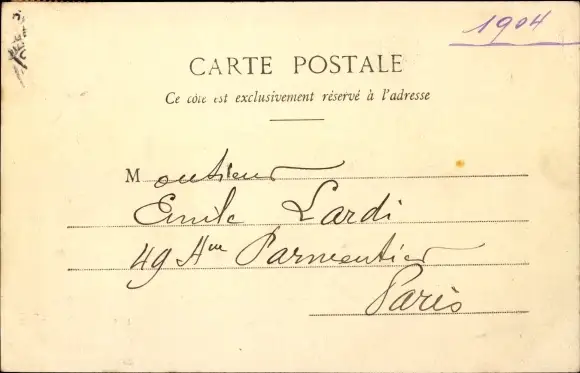 1904
CARTE POSTALE
Ce côté est exclusivement réservé à l'adresse
Monsieur
Emile Lardi
49 Ave Parmentier
Paris